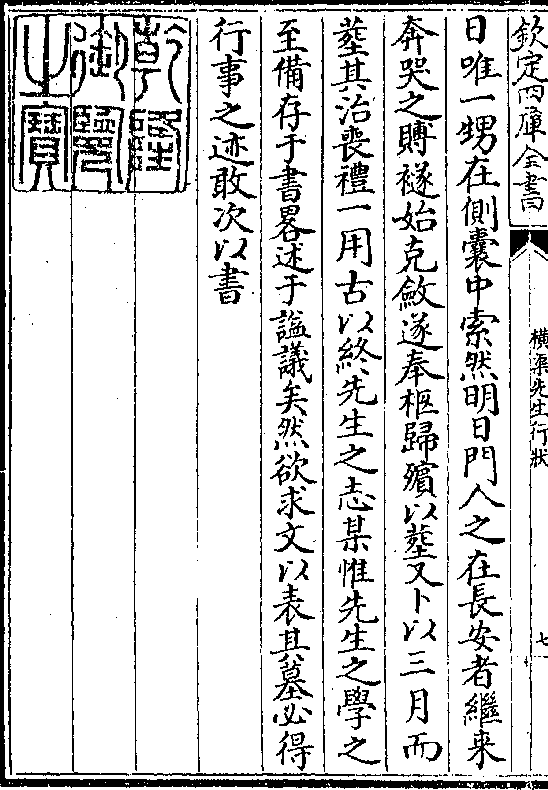 欽定四庫全書
橫渠先生行狀
七
日唯一甥在側囊中索然明日門人之在長安者繼來
奔哭之賻襚始克斂遂奉柩歸殯以塟又卜以三月而
塟其治喪禮一用古以終先生之志某惟先生之學之
至備存于書畧述于諡議矣然欲求文以表其墓必得
行事之迹敢次以書
乾隆御覽之寶